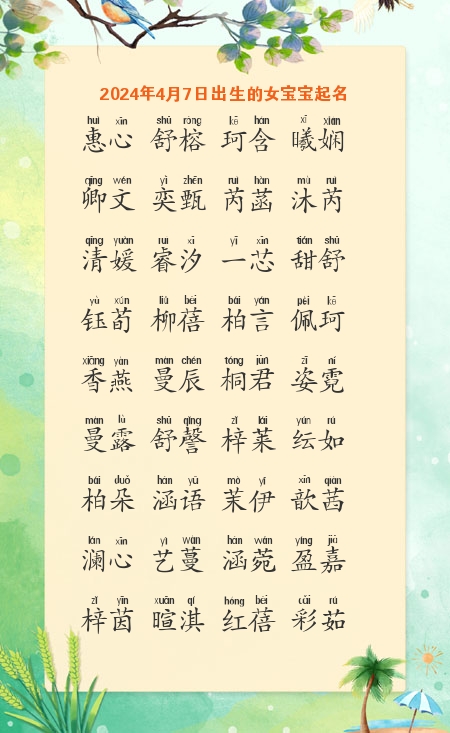 2024年4月7日出生的女宝宝起名
huì xīn shū róng kē hán xī xián
惠心 舒榕 珂含 曦娴
qīng wén yì zhēn ruì hàn mù ruì
卿文 奕甄 芮菡 沐芮
qīng yuàn ruì xī yī xīn tián shū
清媛 睿汐 一芯 甜舒
yù xún liǔ bèi bǎi yán pèi kē
钰荀 柳蓓 柏言 佩珂
xiāng yàn màn chén tóng jūn zī ní
香燕 曼辰 桐君 姿霓
màn lù shū qìng zǐ lái yún rú
曼露 舒謦 梓莱 纭如
bǎi duǒ hán yǔ mò yī xīn qiàn
柏朵 涵语 茉伊 歆茜
lán xīn yì wàn hán wǎn yíng jiā
澜心 艺蔓 涵菀 盈嘉
zǐ yīn xuān qí hóng bèi cǎi rú
梓茵 暄淇 红蓓 彩茹